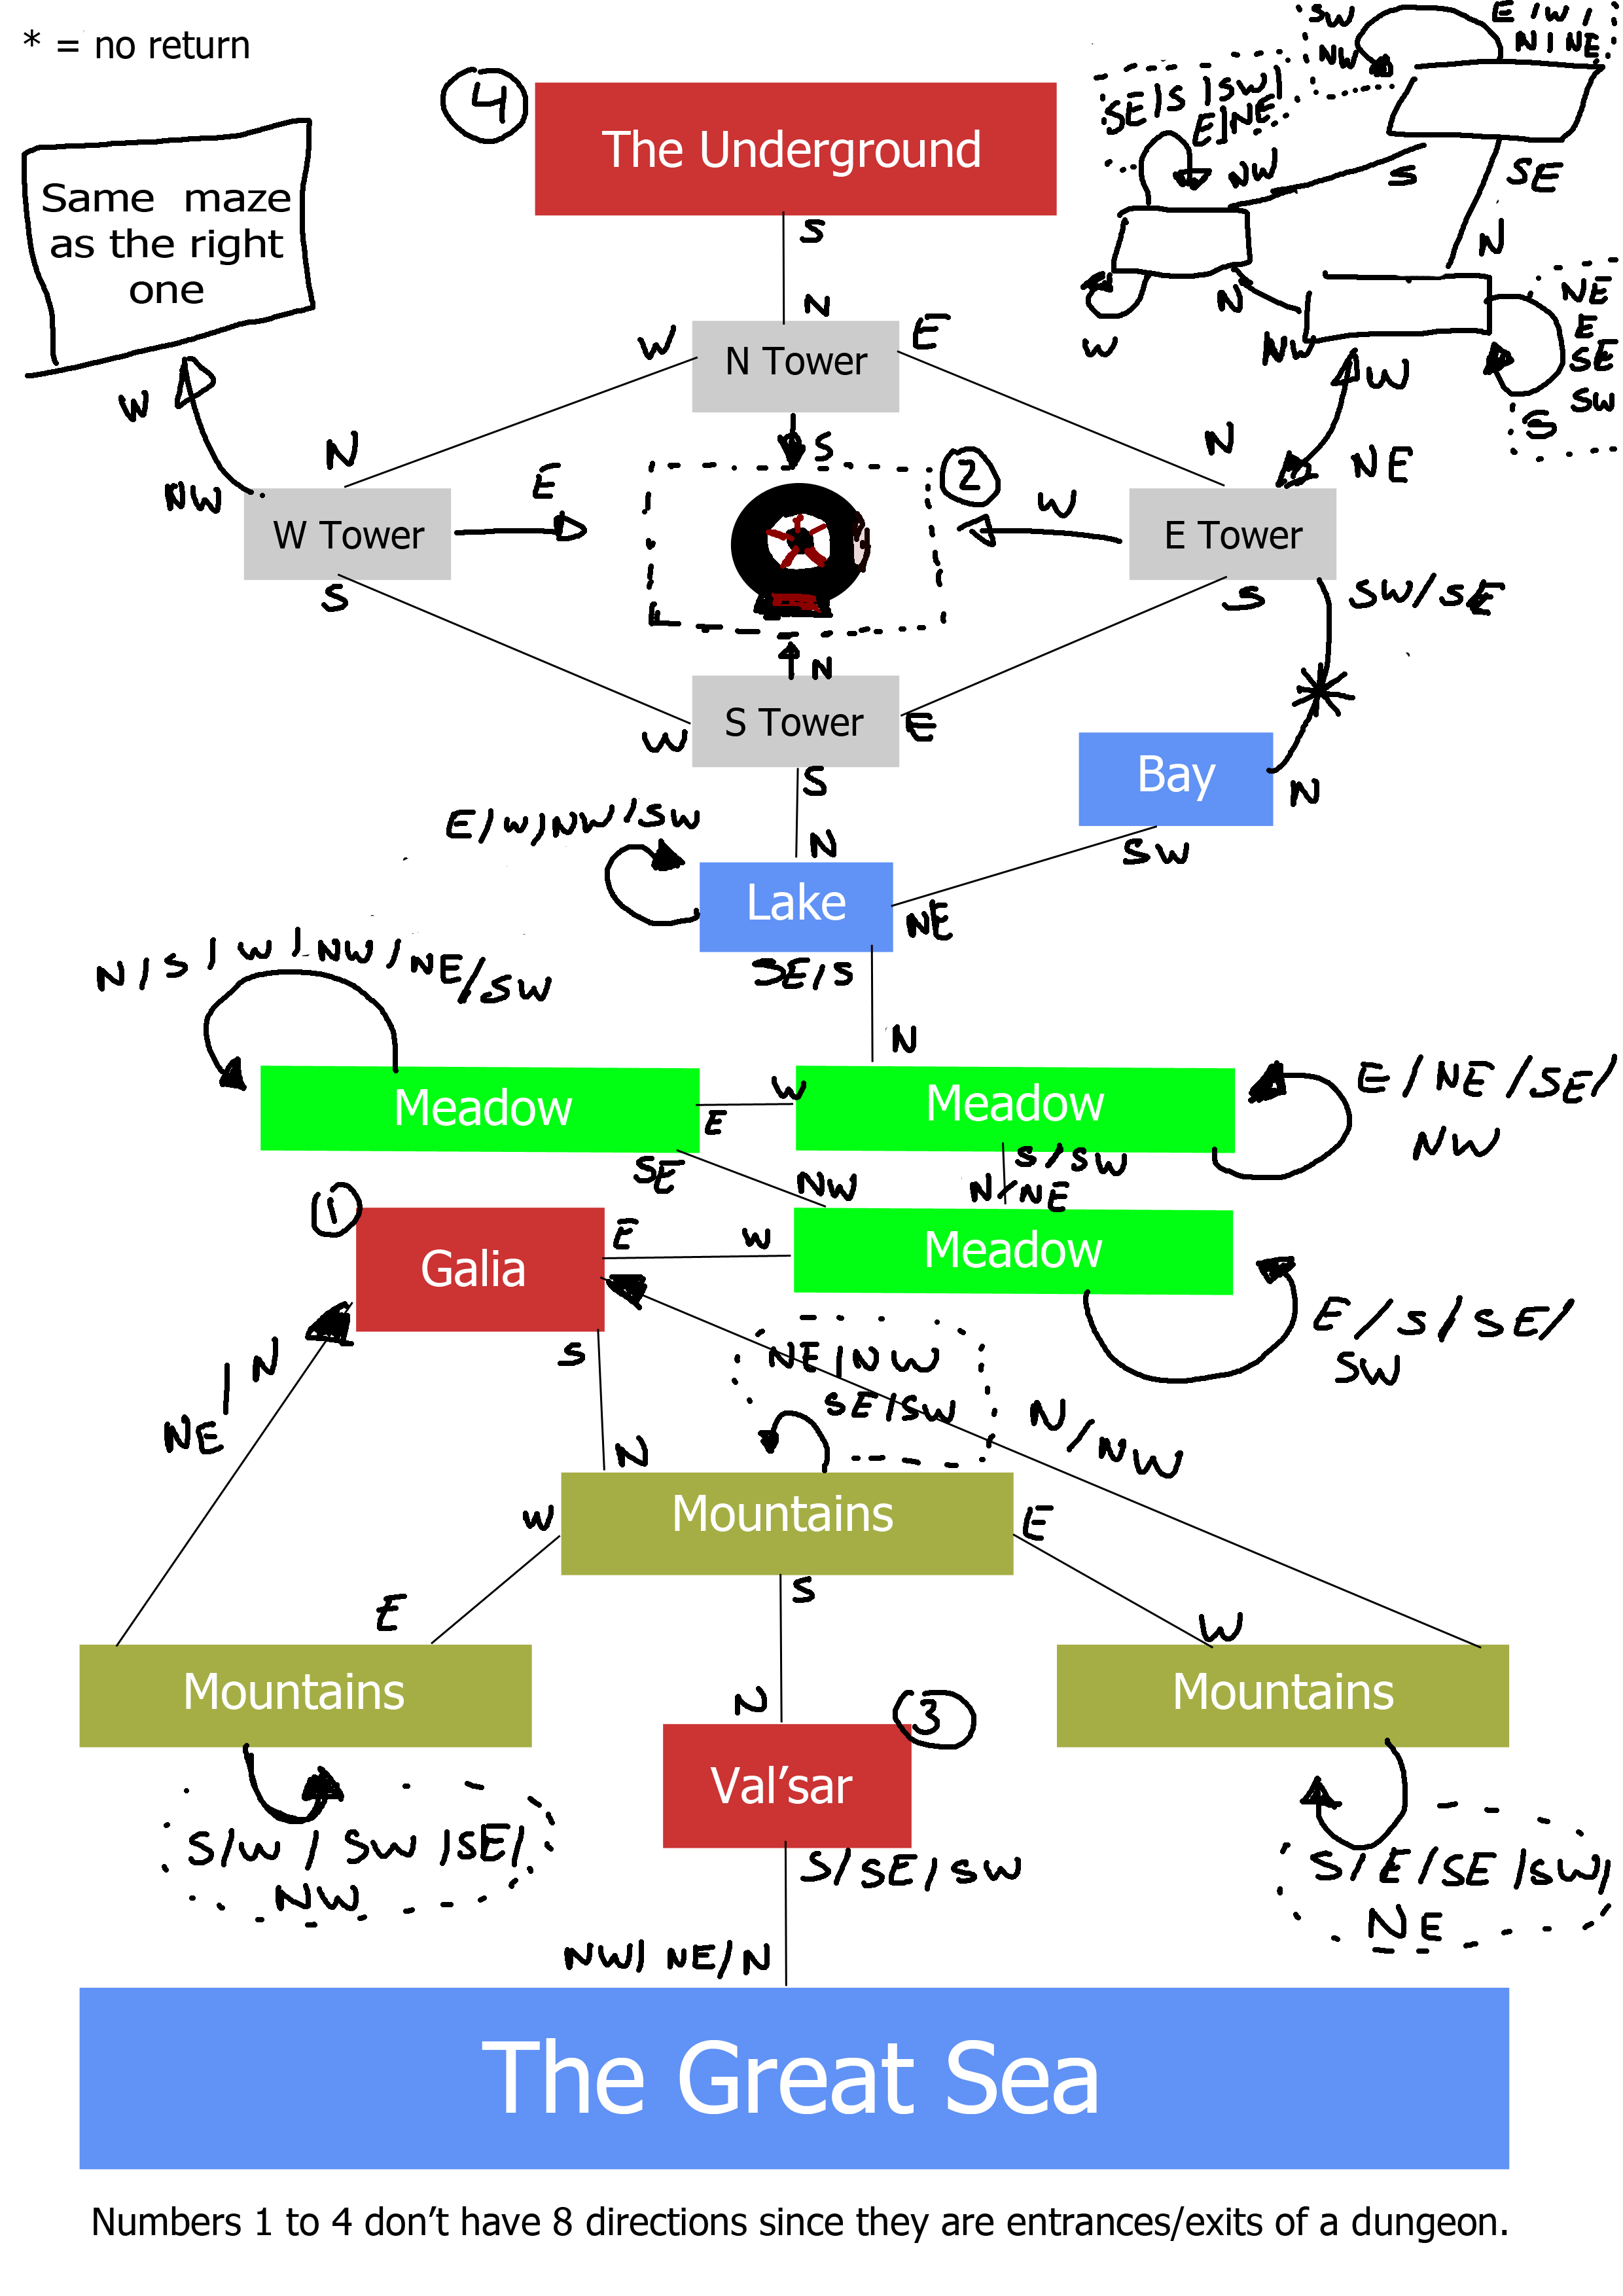 * = no return
SW
E / W /
N | NE
NW
4
The Underground
SE | S | SW |
E | NE
NW
S
SE
S
N
N
W
E
N Tower
Same maze
as the right
one
W
N
NW
W
NE
E
SE
SW
S
W
NW
N
S
N
NE
E
2
W
W Tower
E Tower
S
S
SW / SE
N
S Tower
W
E
S
Bay
N
SW
E / W / NW / SW
N
Lake
NE
SE / S
N / S / W / NW / NE / SW
N
Meadow
E
W
Meadow
E / NE / SE /
NW
SE
S / SW
NW
N / NE
1
Galia
E
W
Meadow
E / S / SE /
SW
S
NE | NW
SE | SW
NE / N
N / NW
N
W
Mountains
E
S
E
W
Mountains
N
3
Mountains
Val’sar
S / W / SW / SE /
NW
S / SE / SW
S / E / SE / SW /
NE
NW / NE / N
The Great Sea
Numbers 1 to 4 don’t have 8 directions since they are entrances/exits of a dungeon.